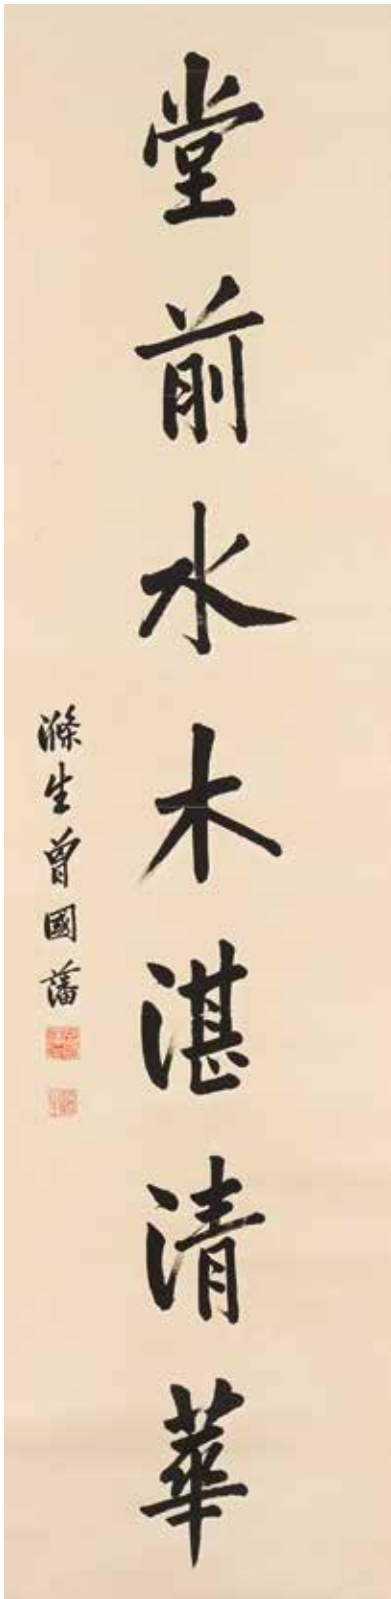 堂前水木湛清華
滌生曾國藩